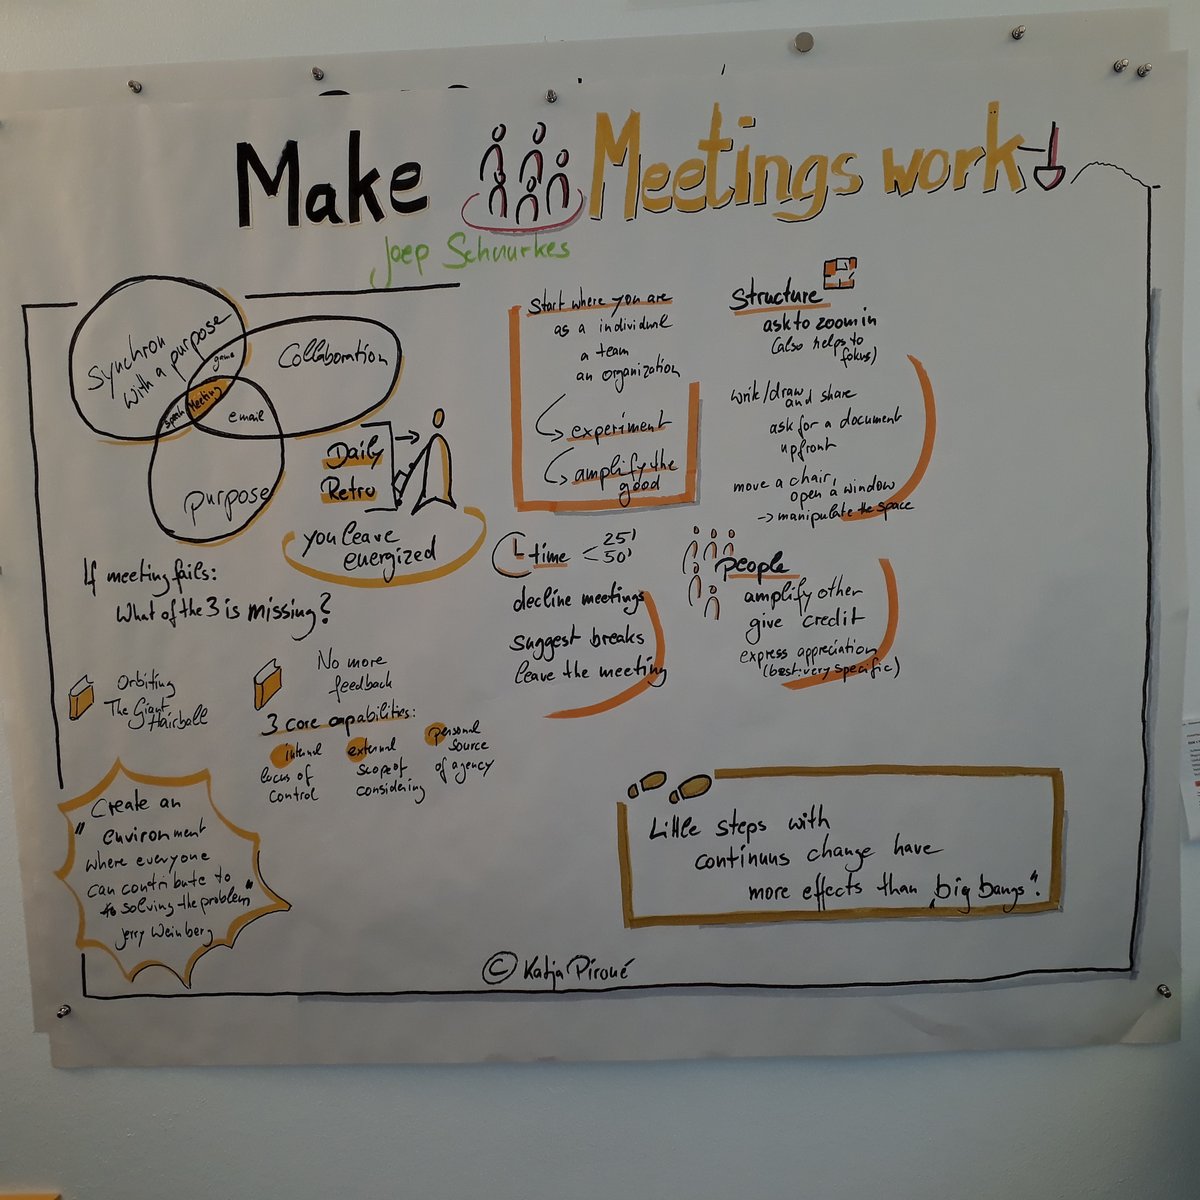 Make Meetings work
Joep Schuurkes
Synchron
with a purpose
game
Collaboration
Speech
Meeting
email
purpose
Daily
Retro
you leave
energized
If meeting fails:
What of the 3 is missing?
Orbiting
The Giant
Hairball
No more
feedback
3 core capabilities:
internal
locus of
control
external
scope of
considering
personal
source
of agency
"Create an
environment
where everyone
can contribute to
to solving the problem"
Jerry Weinberg
Start where you are
as a individual
a team
an organization
experiment
amplify the
good
time < 25'
50'
decline meetings
suggest breaks
leave the meeting
Structure
ask to zoom in
(also helps to
fokus)
write/draw
and share
ask for a document
upfront
move a chair,
open a window
→ manipulate the space
people
amplify other
give credit
express appreciation
(best: very specific)
Little steps with
continuus change have
more effects than „big bangs“.
© Katja Piroué